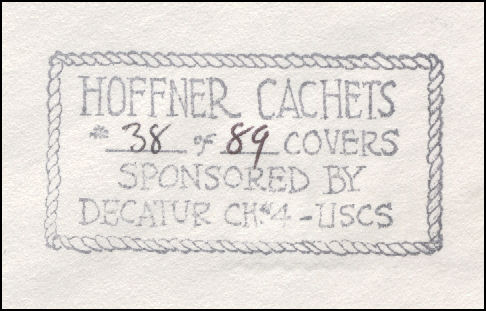 HOFFNER CACHETS
# 38 of 89 COVERS
SPONSORED BY
DECATUR CH#4 - USCS